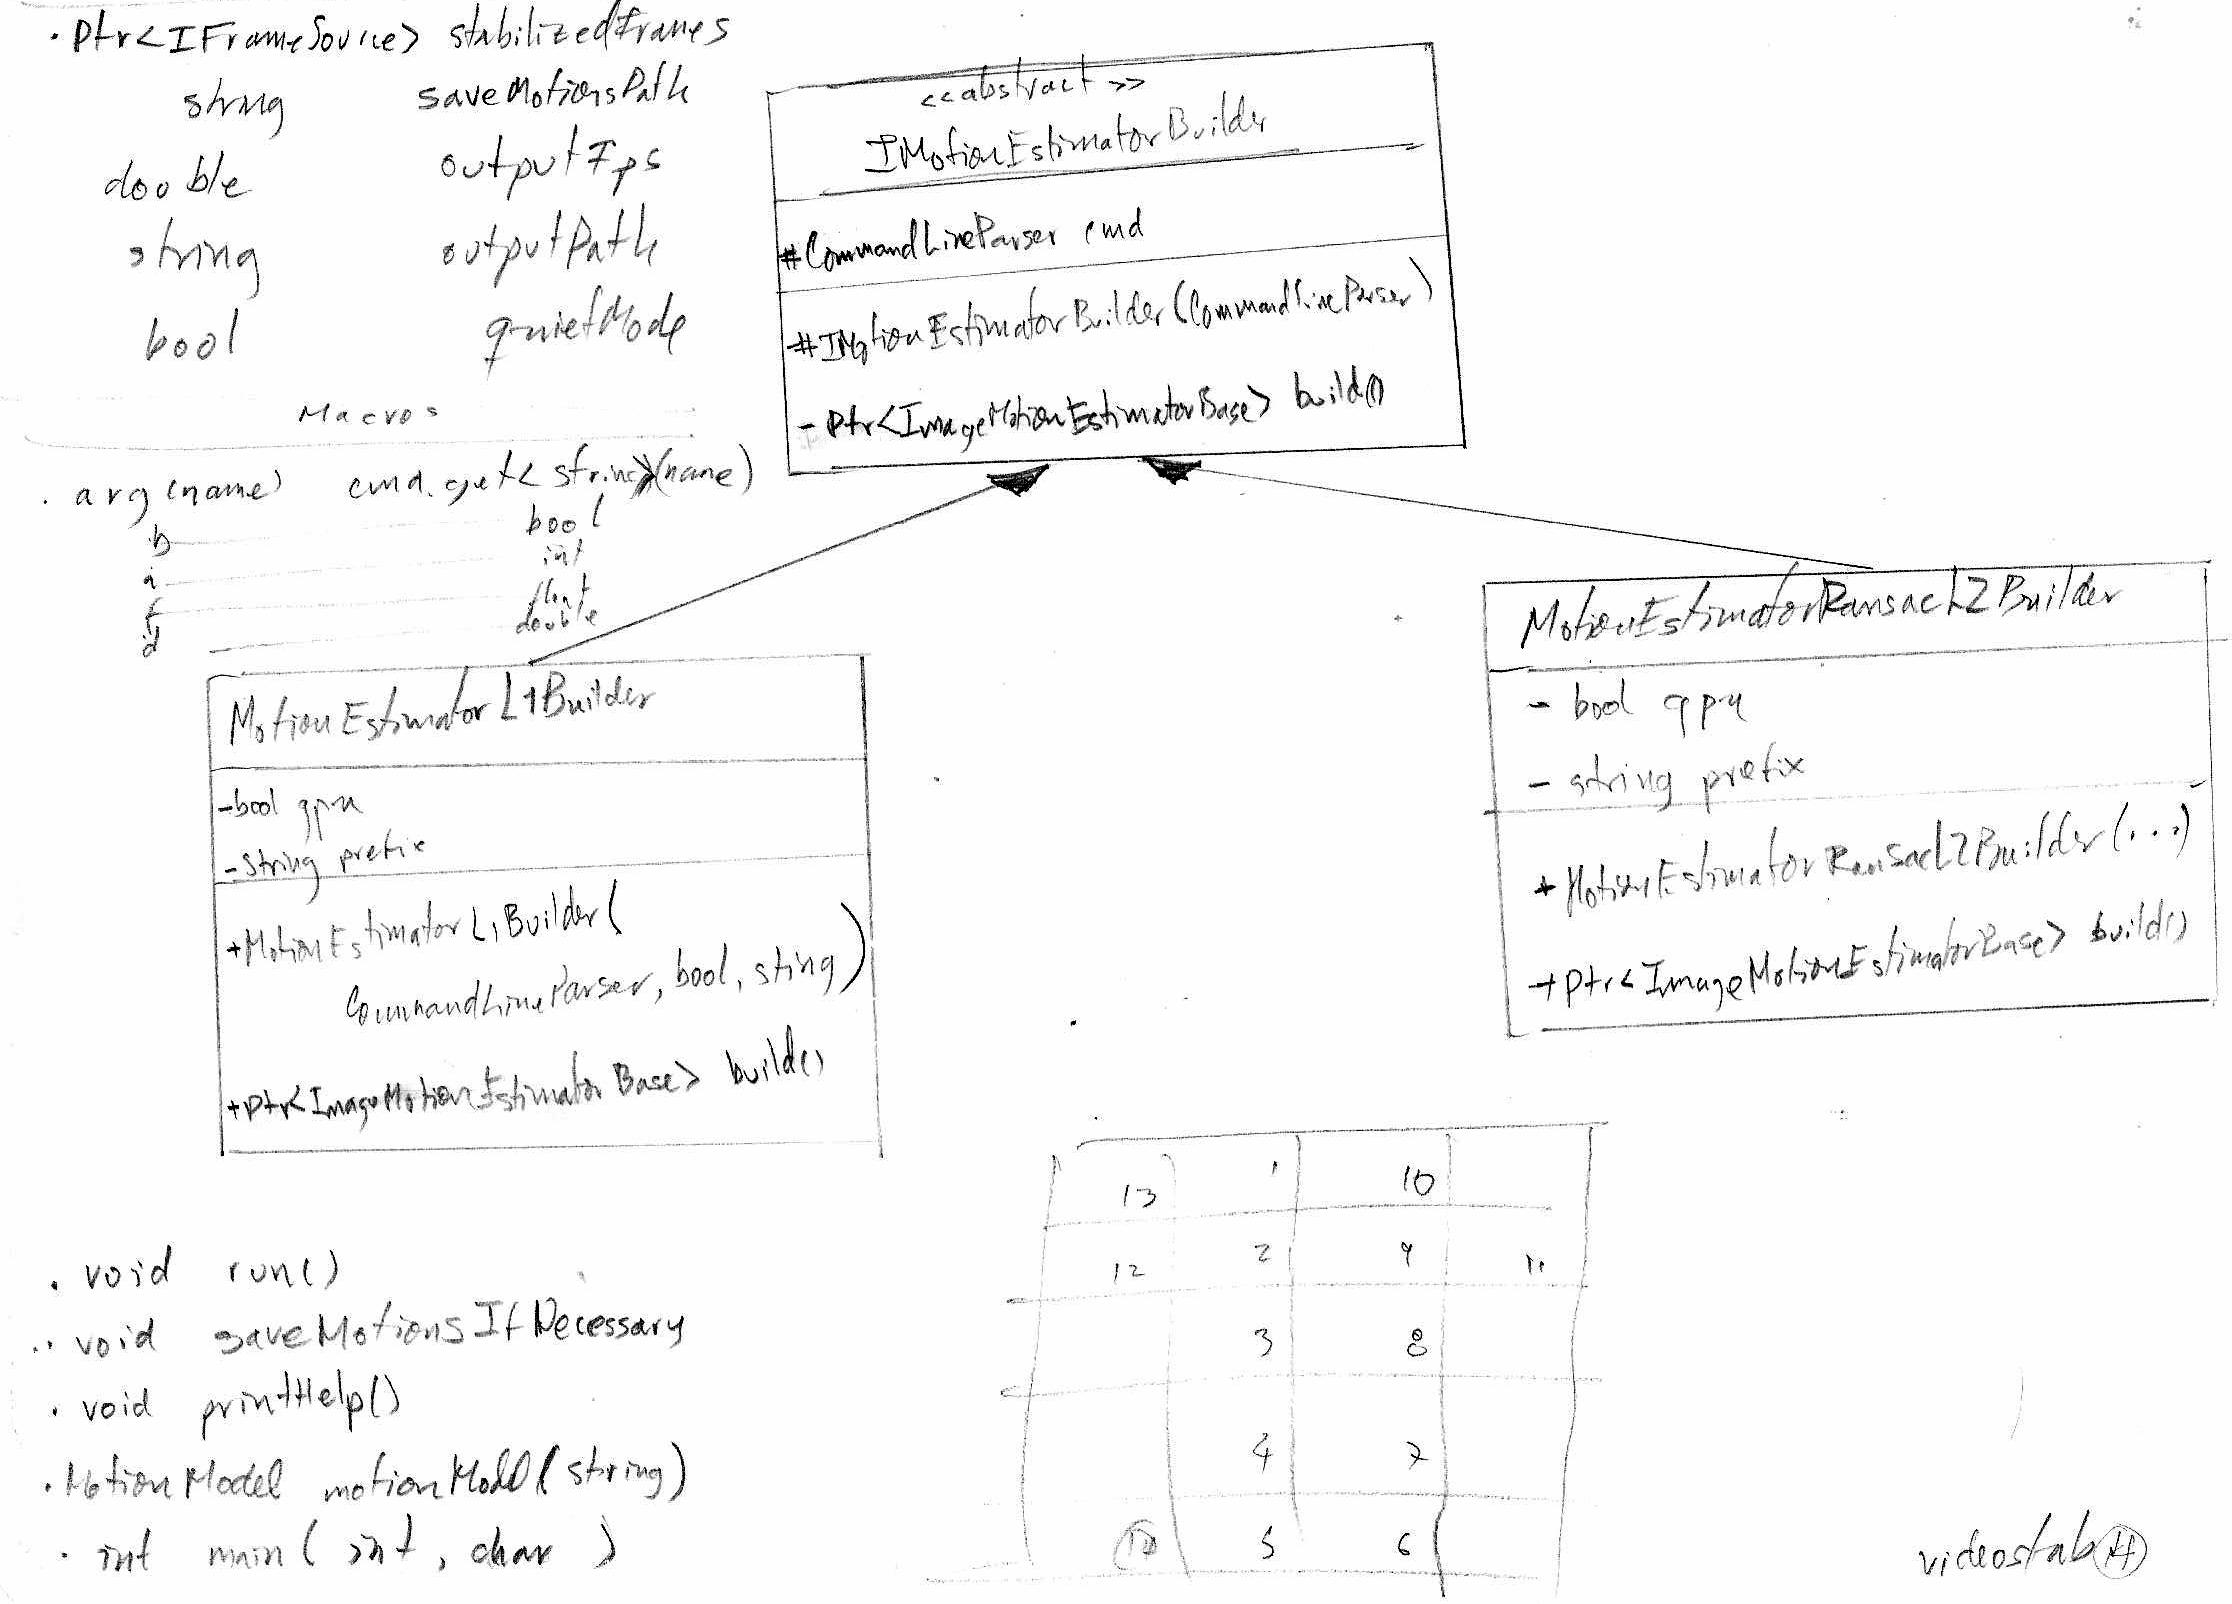 . Ptr<IFrameSource> stabilizedFrames
string saveMotionsPath
double outputFps
string outputPath
bool quietMode
Macros
. arg(name) cmd.get<string>(name)
b bool
i int
f float
d double
<<abstract>>
IMotionEstimatorBuilder
#CommandLineParser cmd
#IMotionEstimatorBuilder(CommandLineParser)
- Ptr<ImageMotionEstimatorBase> build()
MotionEstimatorL1Builder
-bool gpu
-string prefix
+MotionEstimatorL1Builder(
CommandLineParser, bool, sting)
+Ptr<ImageMotionEstimatorBase> build()
MotionEstimatorRansacL2Builder
- bool gpu
- string prefix
+MotionEstimatorRansacL2Builder(...)
+Ptr<ImageMotionEstimatorBase> build()
. void run()
.. void saveMotionsIfNecessary
. void printHelp()
. MotionModel motionModel(string)
. int main( int, char )
13 1 10
12 2 9 11
3 8
4 7
5 6
videostab